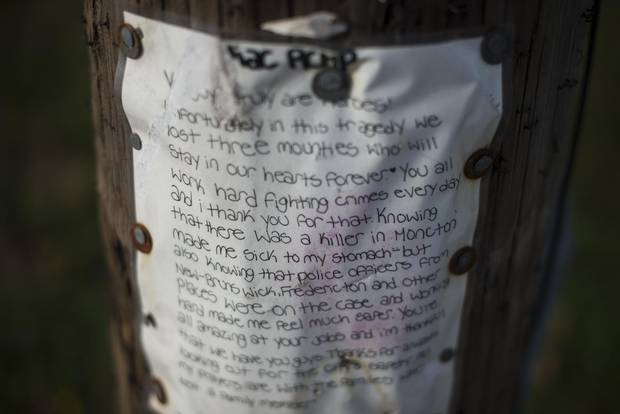 RCMP
You truly are heroes!
Unfortunately in this tragedy we
lost three mounties who will
stay in our hearts forever. You all
work hard fighting crimes every day
and i thank you for that. Knowing
that there was a killer in Moncton
made me sick to my stomach - but
also knowing that police officers from
New-Brunswick, Fredericton and other
places were on the case and working
hard made me feel much safer. You're
all amazing at your jobs and i'm thankful
that we have you guys. Thanks for always
looking out for the city's safety. All
my prayers are with the families who
lost a family member.